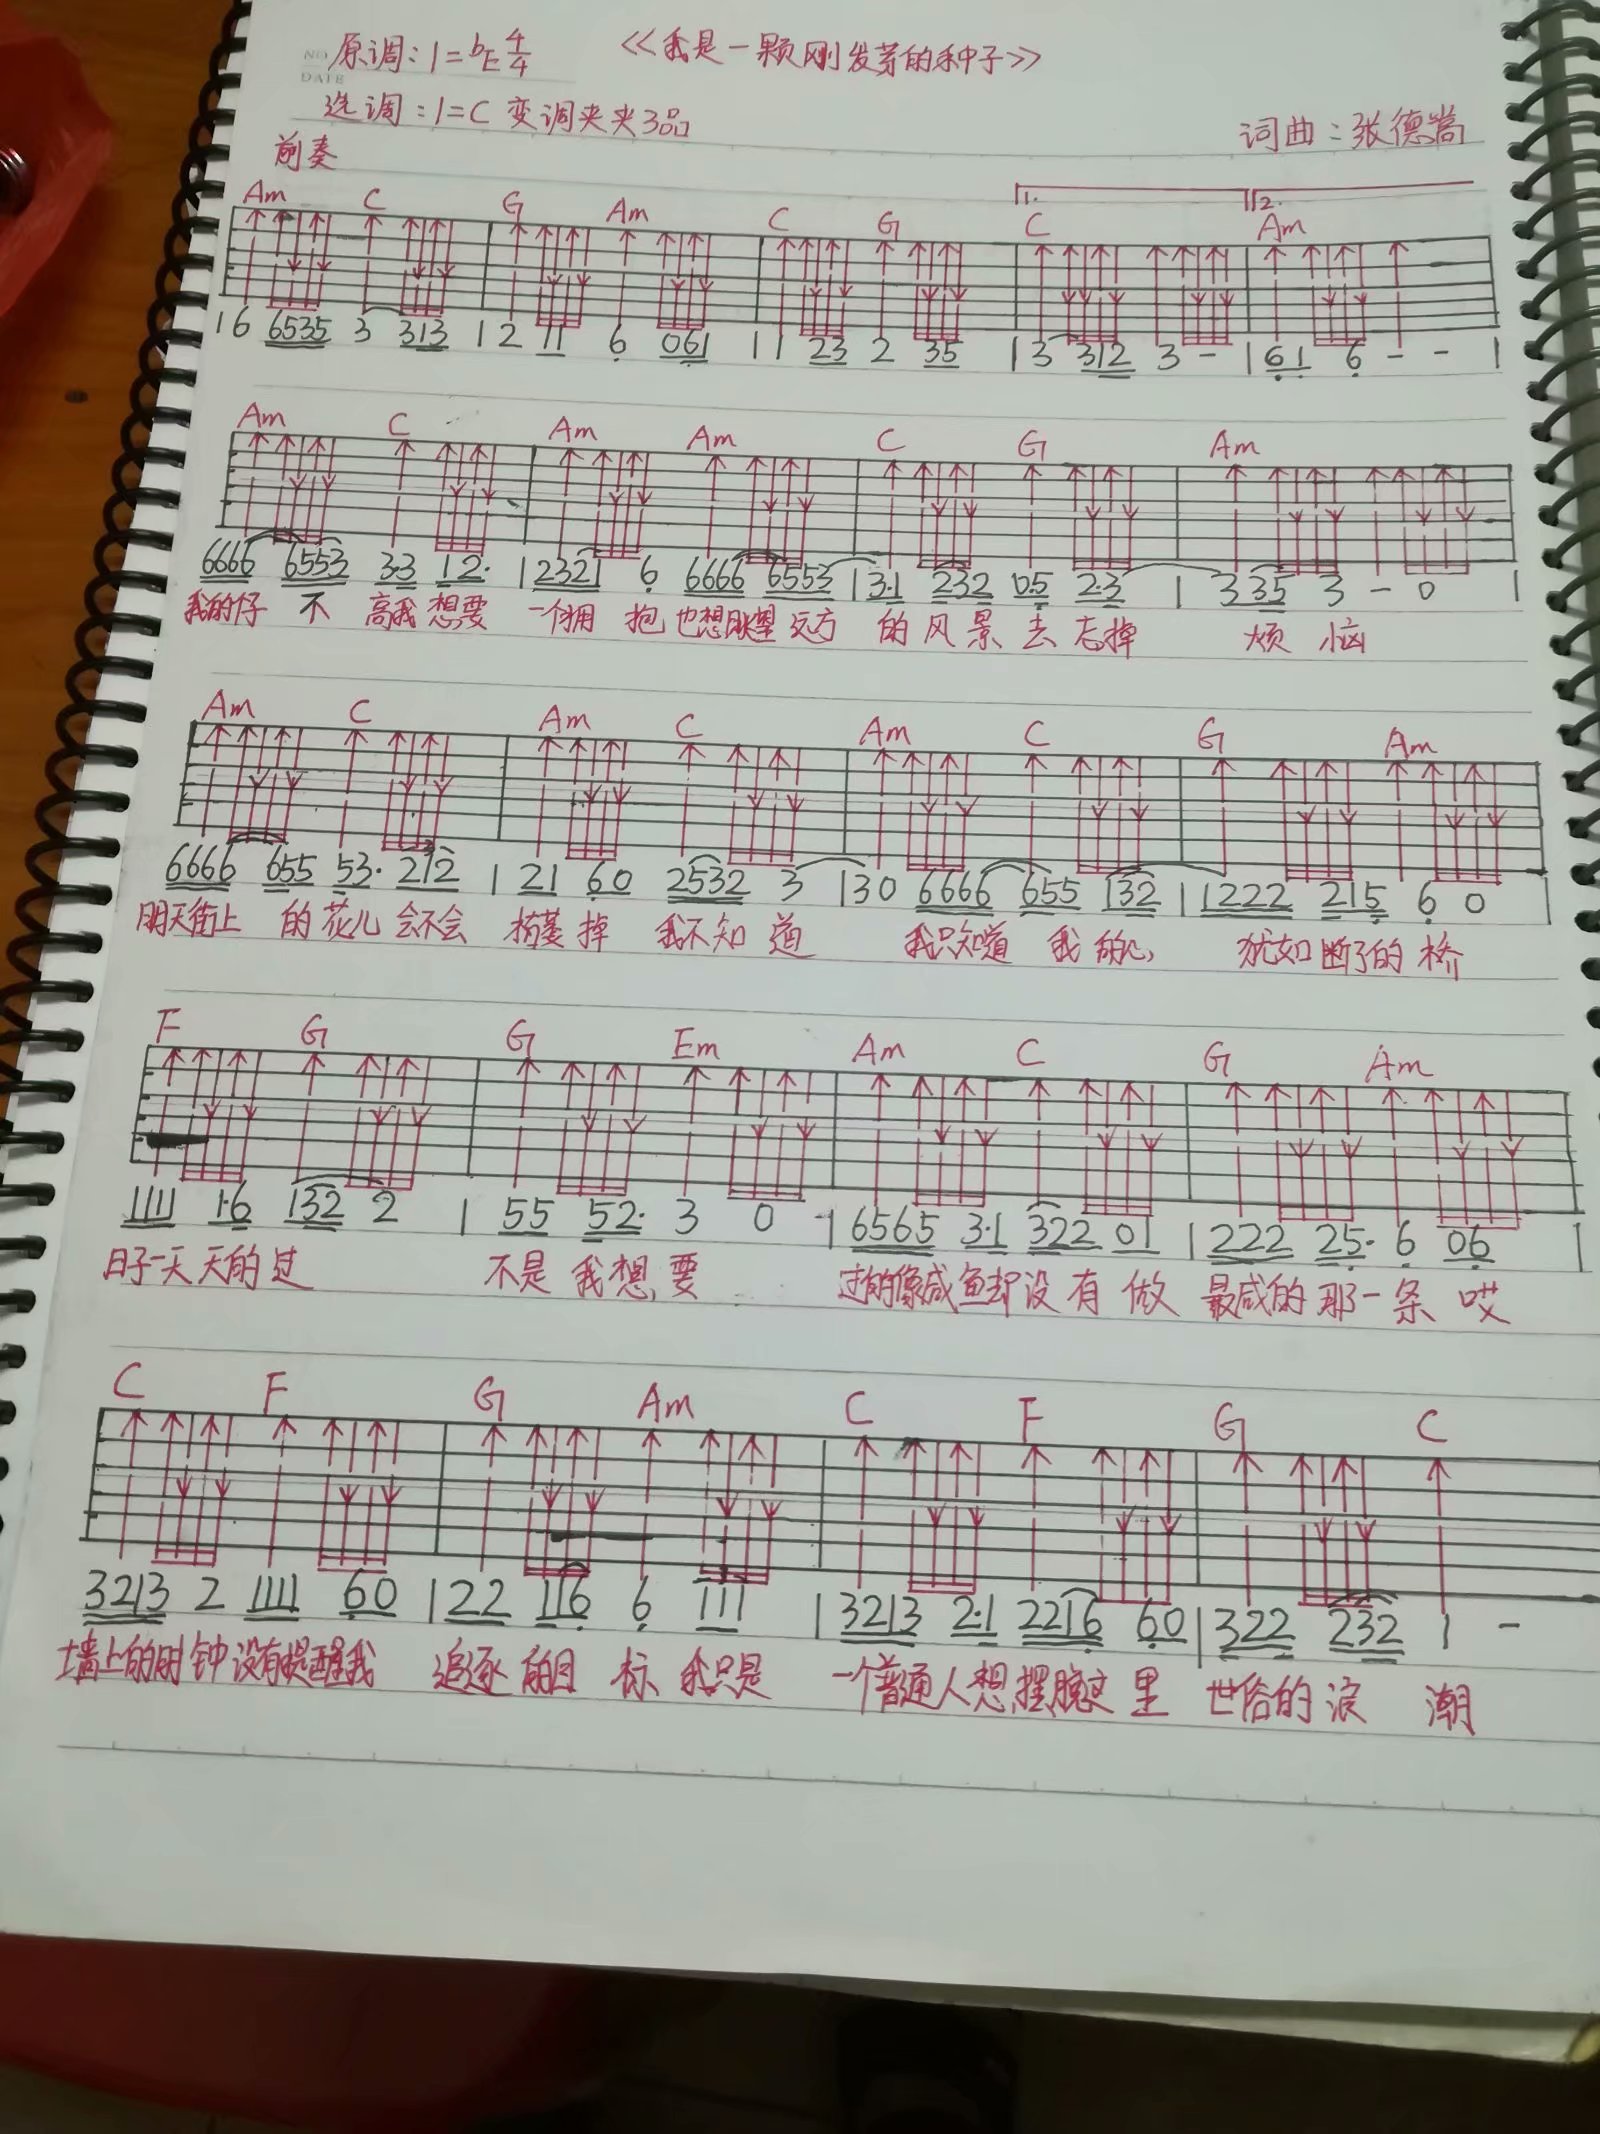 NO.
DATE
原调:1=bE 4/4 《我是一颗刚发芽的种子》
选调:1=C 变调夹夹3品
词曲:张德嵩
前奏
1. 2.
Am C G Am C G C Am
16 6535 3 313 | 2 11 6 061 | 1 23 2 35 | 3 312 3 - | 61 6 - - |
Am C Am Am C G Am
6666 6553 3·3 12· | 2321 6 6666 6553 | 3·1 232 05 2·3 | 335 3 - 0 |
我的仔 不 高我 想要 一个拥 抱 也想眺望 远方 的 风 景 去 忘掉 烦 恼
Am C Am C Am C G Am
6666 655 53· 212 | 21 60 2532 3 | 30 6666 655 132 | 1222 215 6 0 |
明天街上 的 花儿 会不会 枯萎 掉 我不知 道 我只知道 我 的心 犹如断了的 桥
F G G Em Am C G Am
1111 1·6 132 2 | 55 52· 3 0 | 6565 3·1 322 01 | 222 25· 6 06 |
日子一天天的过 不是 我想 要 过的像咸鱼却没 有 做 最咸的那一条 哎
C F G Am C F G C
3213 2 1111 60 | 22 116 6 111 | 3213 2·1 2216 60 | 322 232 1 -
墙上的时 钟 没有提醒我 追逐 的目 标 我只是 一个普通人想摆脱这 里 世俗的 浪 潮